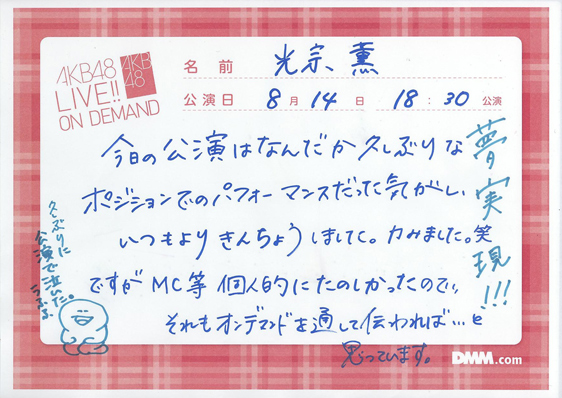 AKB48
LIVE!!
ON DEMAND
AKB
48
名前 光宗、薫
公演日 8月14日 18:30公演
今日の公演はなんだか久しぶりな
ポジションでのパフォーマンスだった気がし、
いつもよりきんちょうしましてた。力みました。笑
ですがMC等個人的にたのしかったので、
それもオンデマンドを通して伝われば…と
思っています。
夢実現!!!
久しぶりに
公演で泣いた。
うふふ
DMM.com